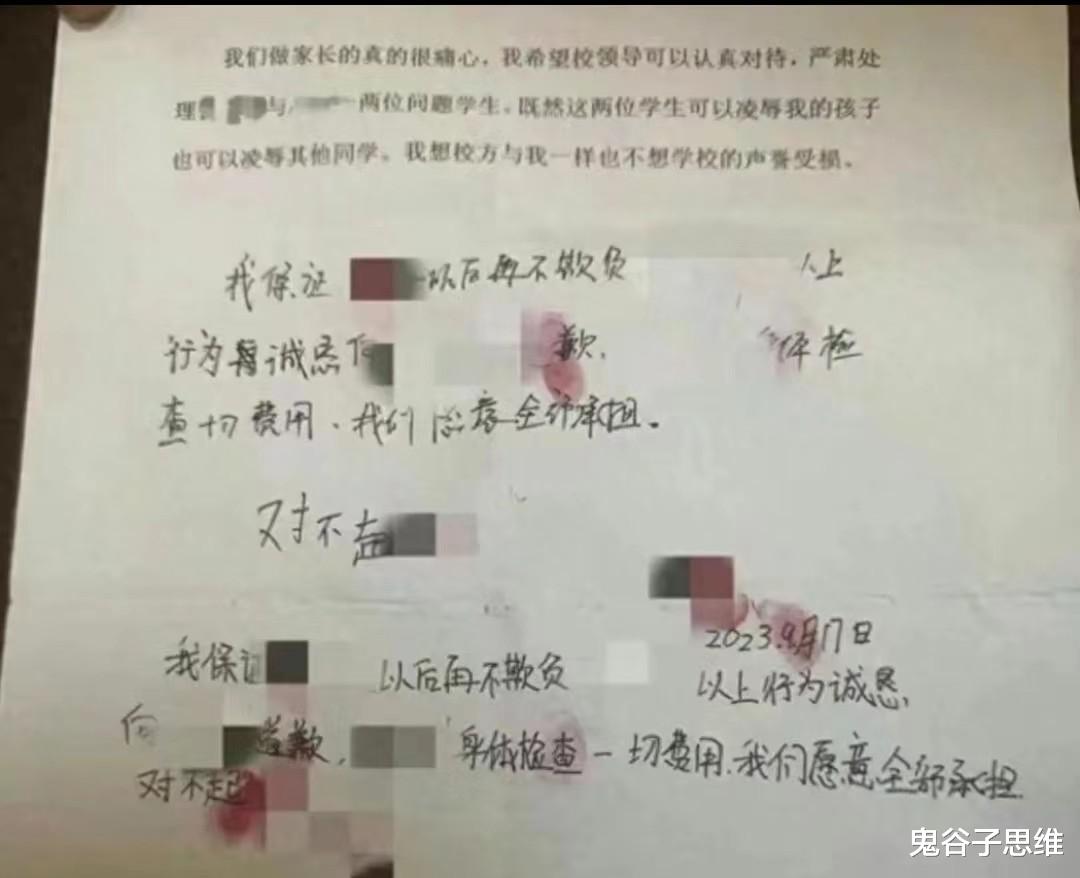 我们做家长的真的很痛心，我希望校领导可以认真对待，严肃处
理 与 两位问题学生。既然这两位学生可以凌辱我的孩子
也可以凌辱其他同学。我想校方与我一样也不想学校的声誉受损。
我保证 以后再不欺负 上
行为 诚恳 歉， 体检
查一切费用、我们愿意全部承担。
对不起
2023.9月17日
我保证 以后再不欺负 以上行为诚恳，
向 道歉， 身体检查一切费用、我们愿意全部承担
对不起
鬼谷子思维